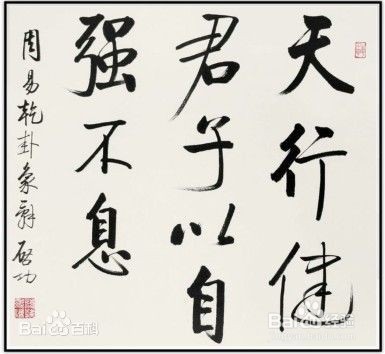 天行健
君子以自
强不息
周易乾卦象辞 启功
Bai百科
Baidu经验